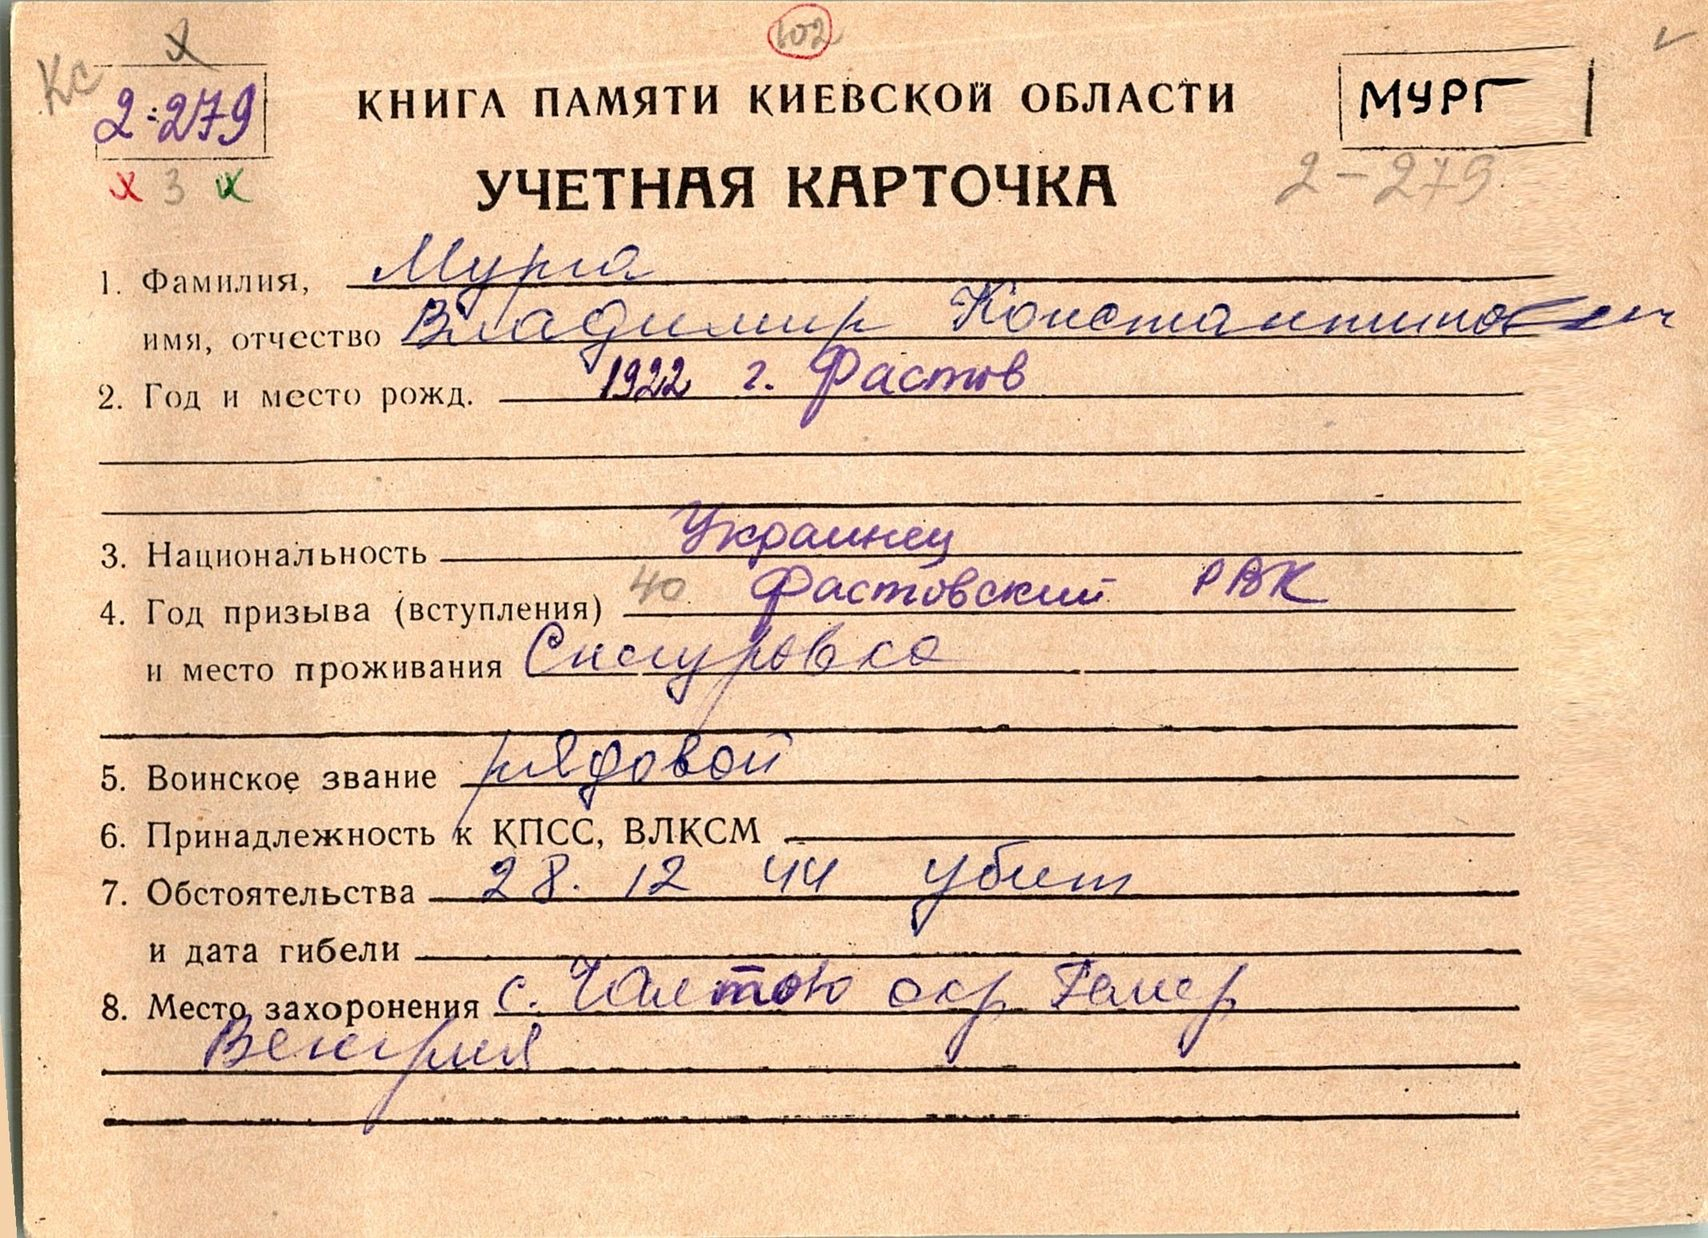 х
102
КС
2-279
КНИГА ПАМЯТИ КИЕВСКОЙ ОБЛАСТИ
МУРГ
х 3 х
УЧЕТНАЯ КАРТОЧКА
2-279
1. Фамилия, Мурга
имя, отчество Владимир Константинович
2. Год и место рожд. 1922 г. Фастов
3. Национальность Украинец
4. Год призыва (вступления) 40 Фастовский РВК
и место проживания Снигуровка
5. Воинское звание рядовой
6. Принадлежность к КПСС, ВЛКСМ
7. Обстоятельства 28. 12 44 убит
и дата гибели
8. Место захоронения с. окр Гемер
Венгрия